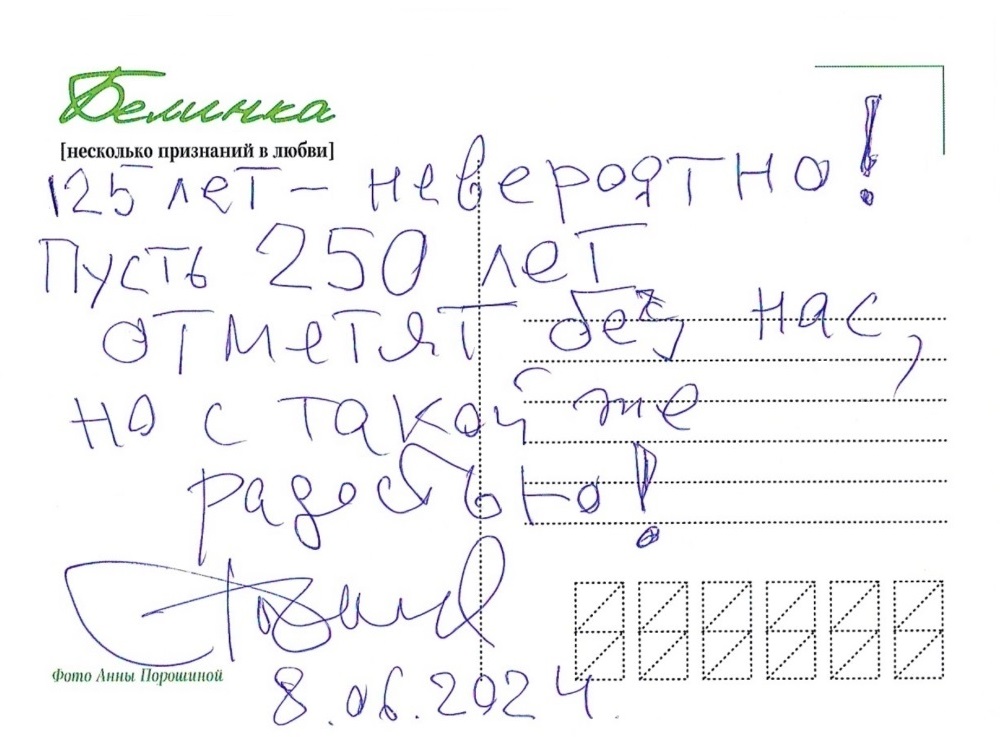 Белинка
[несколько признаний в любви]
125 лет – невероятно!
Пусть 250 лет
отметят без нас,
но с такой же
радостью!
Фото Анны Порошиной
8.06.2024.